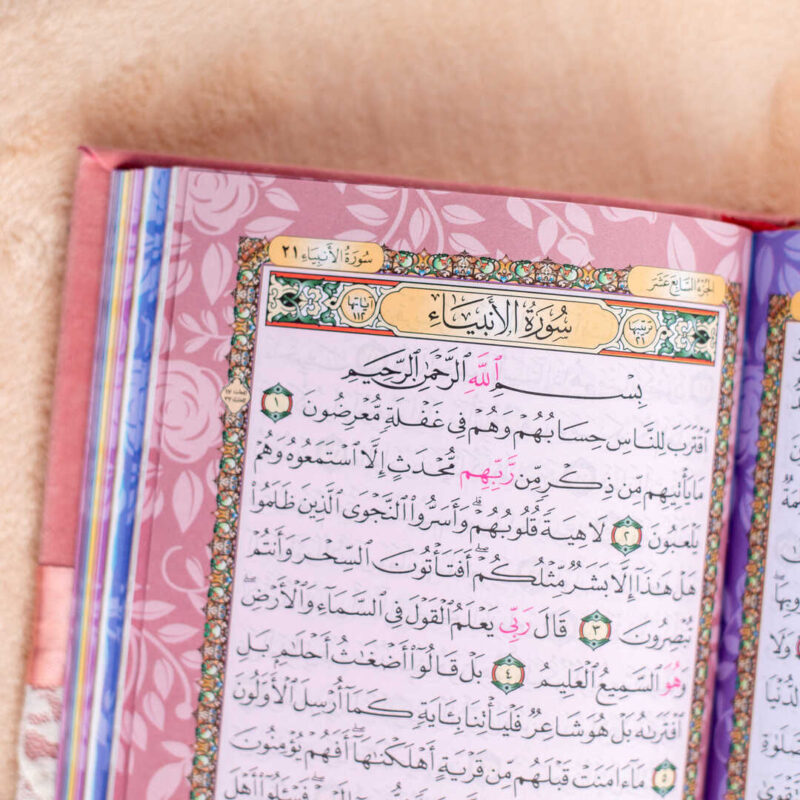 سُورَةُ الأَنبِيَاءِ ٢١
الجُزْءُ السَّابِعَ عَشَرَ
ترتيبها ٢١
سُورَةُ الأَنبِيَاءِ
آياتها ١١٢
بِسْمِ ٱللَّهِ ٱلرَّحْمَٰنِ ٱلرَّحِيمِ
ٱقْتَرَبَ لِلنَّاسِ حِسَابُهُمْ وَهُمْ فِى غَفْلَةٍ مُّعْرِضُونَ ١
مَا يَأْتِيهِم مِّن ذِكْرٍ مِّن رَّبِّهِم مُّحْدَثٍ إِلَّا ٱسْتَمَعُوهُ وَهُمْ
يَلْعَبُونَ ٢ لَاهِيَةً قُلُوبُهُمْ ۗ وَأَسَرُّوا۟ ٱلنَّجْوَى ٱلَّذِينَ ظَلَمُوا۟
هَلْ هَٰذَآ إِلَّا بَشَرٌ مِّثْلُكُمْ ۖ أَفَتَأْتُونَ ٱلسِّحْرَ وَأَنتُمْ
تُبْصِرُونَ ٣ قَالَ رَبِّى يَعْلَمُ ٱلْقَوْلَ فِى ٱلسَّمَآءِ وَٱلْأَرْضِ ۖ
وَهُوَ ٱلسَّمِيعُ ٱلْعَلِيمُ ٤ بَلْ قَالُوٓا۟ أَضْغَٰثُ أَحْلَٰمٍۭ بَلِ
ٱفْتَرَىٰهُ بَلْ هُوَ شَاعِرٌ فَلْيَأْتِنَا بِـَٔايَةٍ كَمَآ أُرْسِلَ ٱلْأَوَّلُونَ
٥ مَآ ءَامَنَتْ قَبْلَهُم مِّن قَرْيَةٍ أَهْلَكْنَٰهَآ ۖ أَفَهُمْ يُؤْمِنُونَ